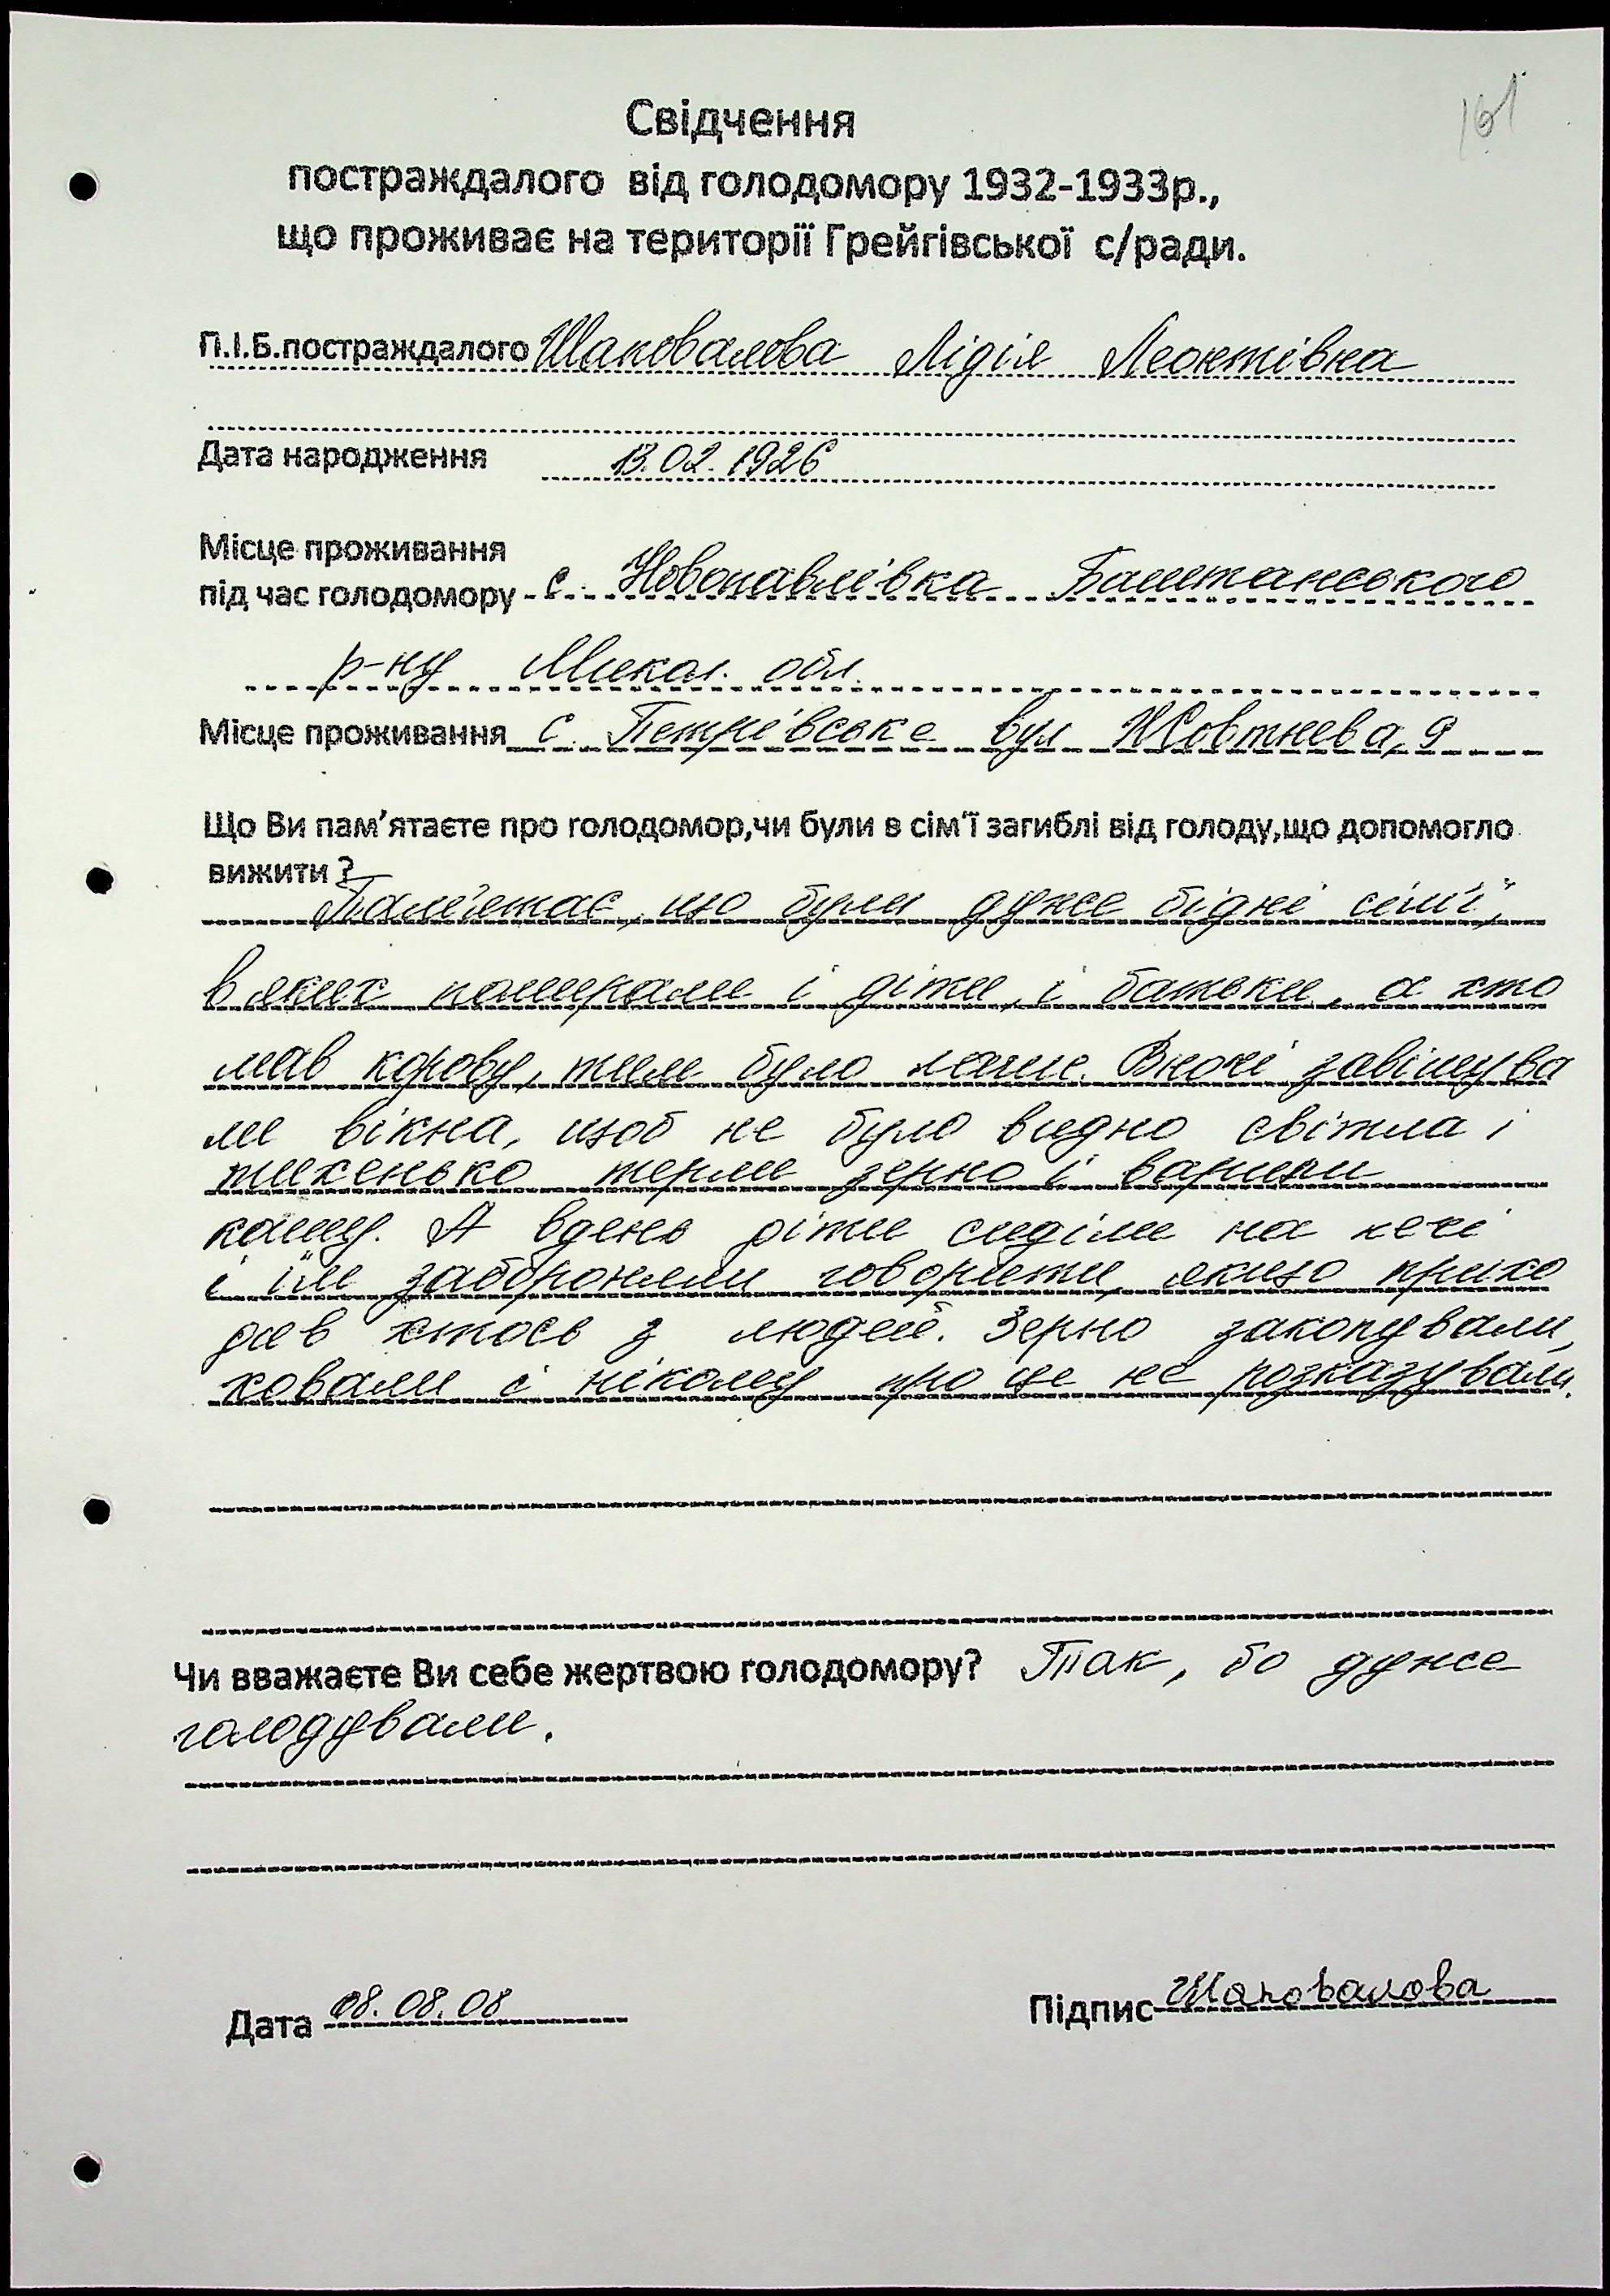 161
Свідчення
постраждалого від голодомору 1932-1933р.,
що проживає на території Грейгівської с/ради.
П.І.Б.постраждалого Шаповалова Лідія Леонтівна
Дата народження 13.02.1926
Місце проживання
під час голодомору с. Новопавлівка Баштанського
р-ну Микол. обл.
Місце проживання с. Петрівське вул Жовтнева, 9
Що Ви пам'ятаєте про голодомор,чи були в сім'ї загиблі від голоду,що допомогло
вижити ?
Пам'ятає, що були дуже бідні сім'ї,
в яких помирали і діти, і батьки, а хто
мав корову, тим було легше. Вночі завішува
ли вікна, щоб не було видно світла і
тихенько терли зерно і варили
кашу. А вдень діти сиділи на печі
і їм забороняли говорити, якщо прихо
див хтось з людей. Зерно закопували,
ховали і нікому про це не розказували.
Чи вважаєте Ви себе жертвою голодомору? Так, бо дуже
голодували.
Дата 08.08.08
Підпис Шаповалова